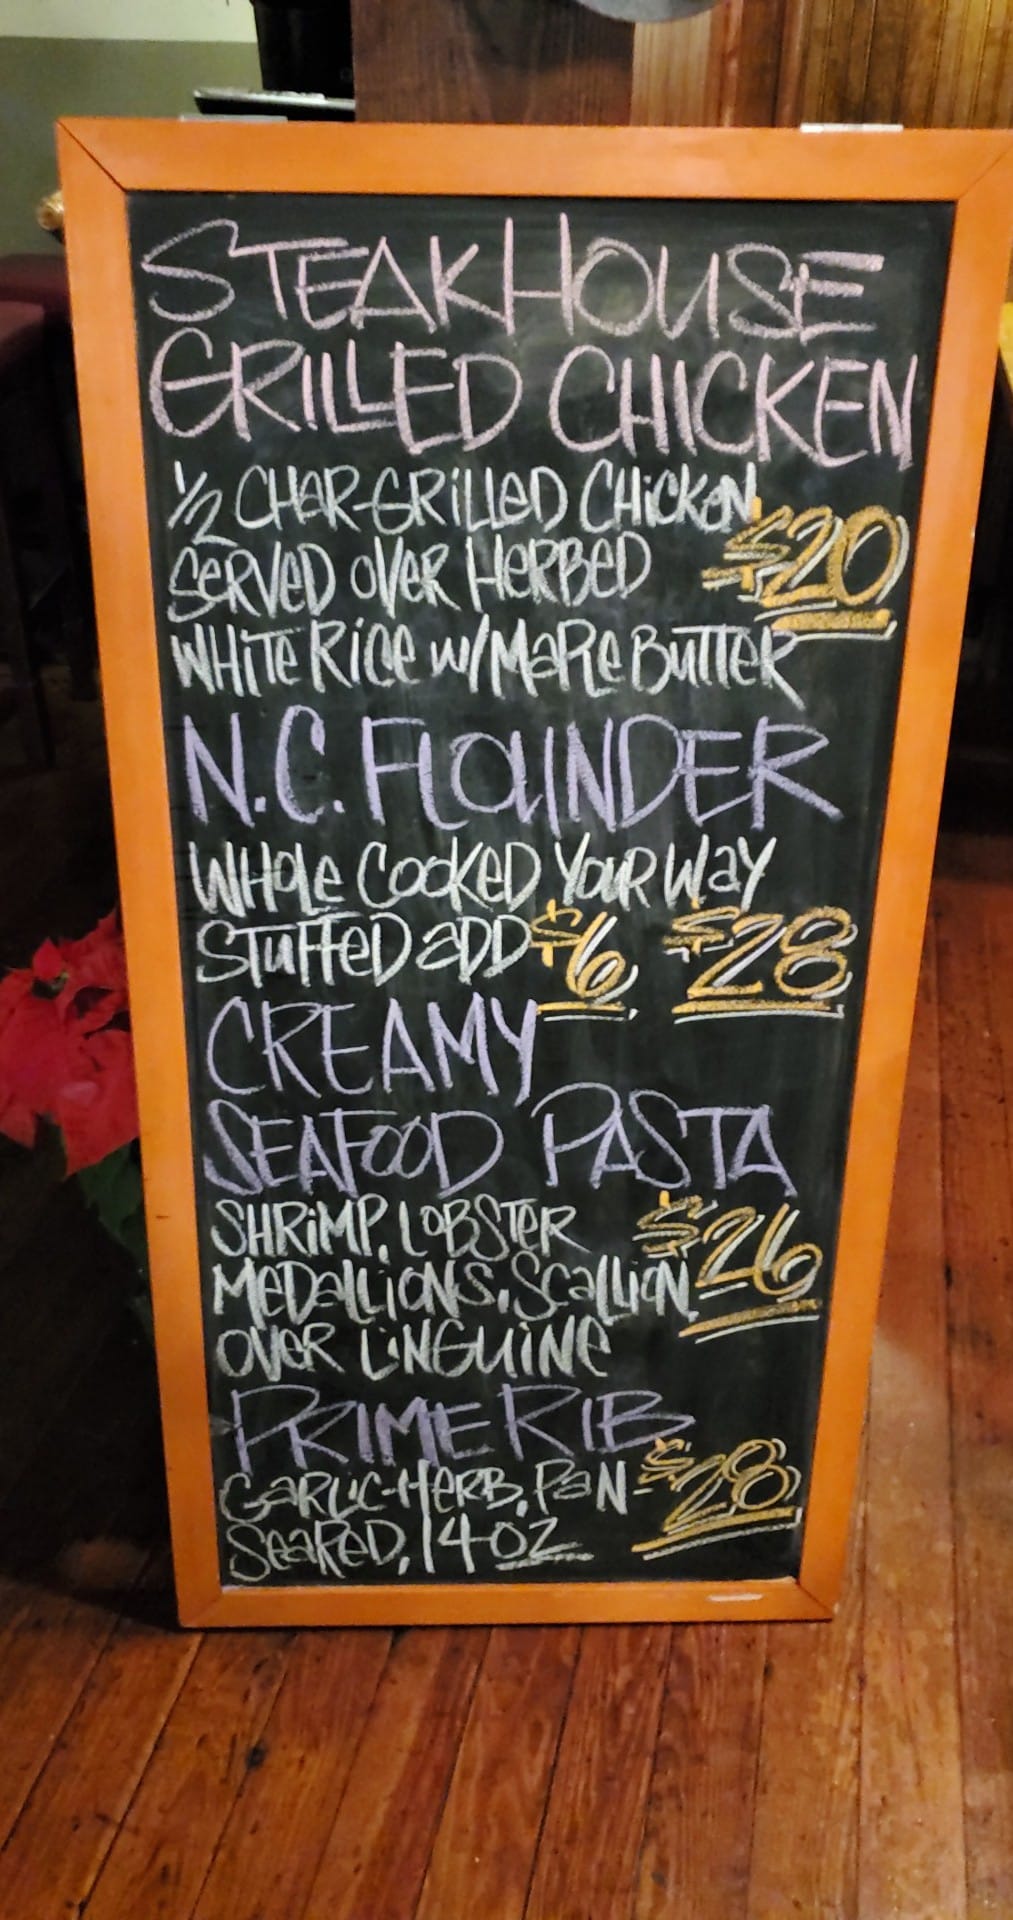 STEAKHOUSE
GRILLED CHICKEN
1/2 CHAR-GRILLED CHICKEN
SERVED OVER HERBED $20
WHITE RICE W/MAPLE BUTTER
N.C. FLOUNDER
WHOLE COOKED YOUR WAY
STUFFED ADD $6 $28
CREAMY
SEAFOOD PASTA
SHRIMP, LOBSTER $26
MEDALLIONS, SCALLION
OVER LINGUINE
PRIME RIB
GARLIC-HERB, PAN- $28
SEARED, 14-OZ